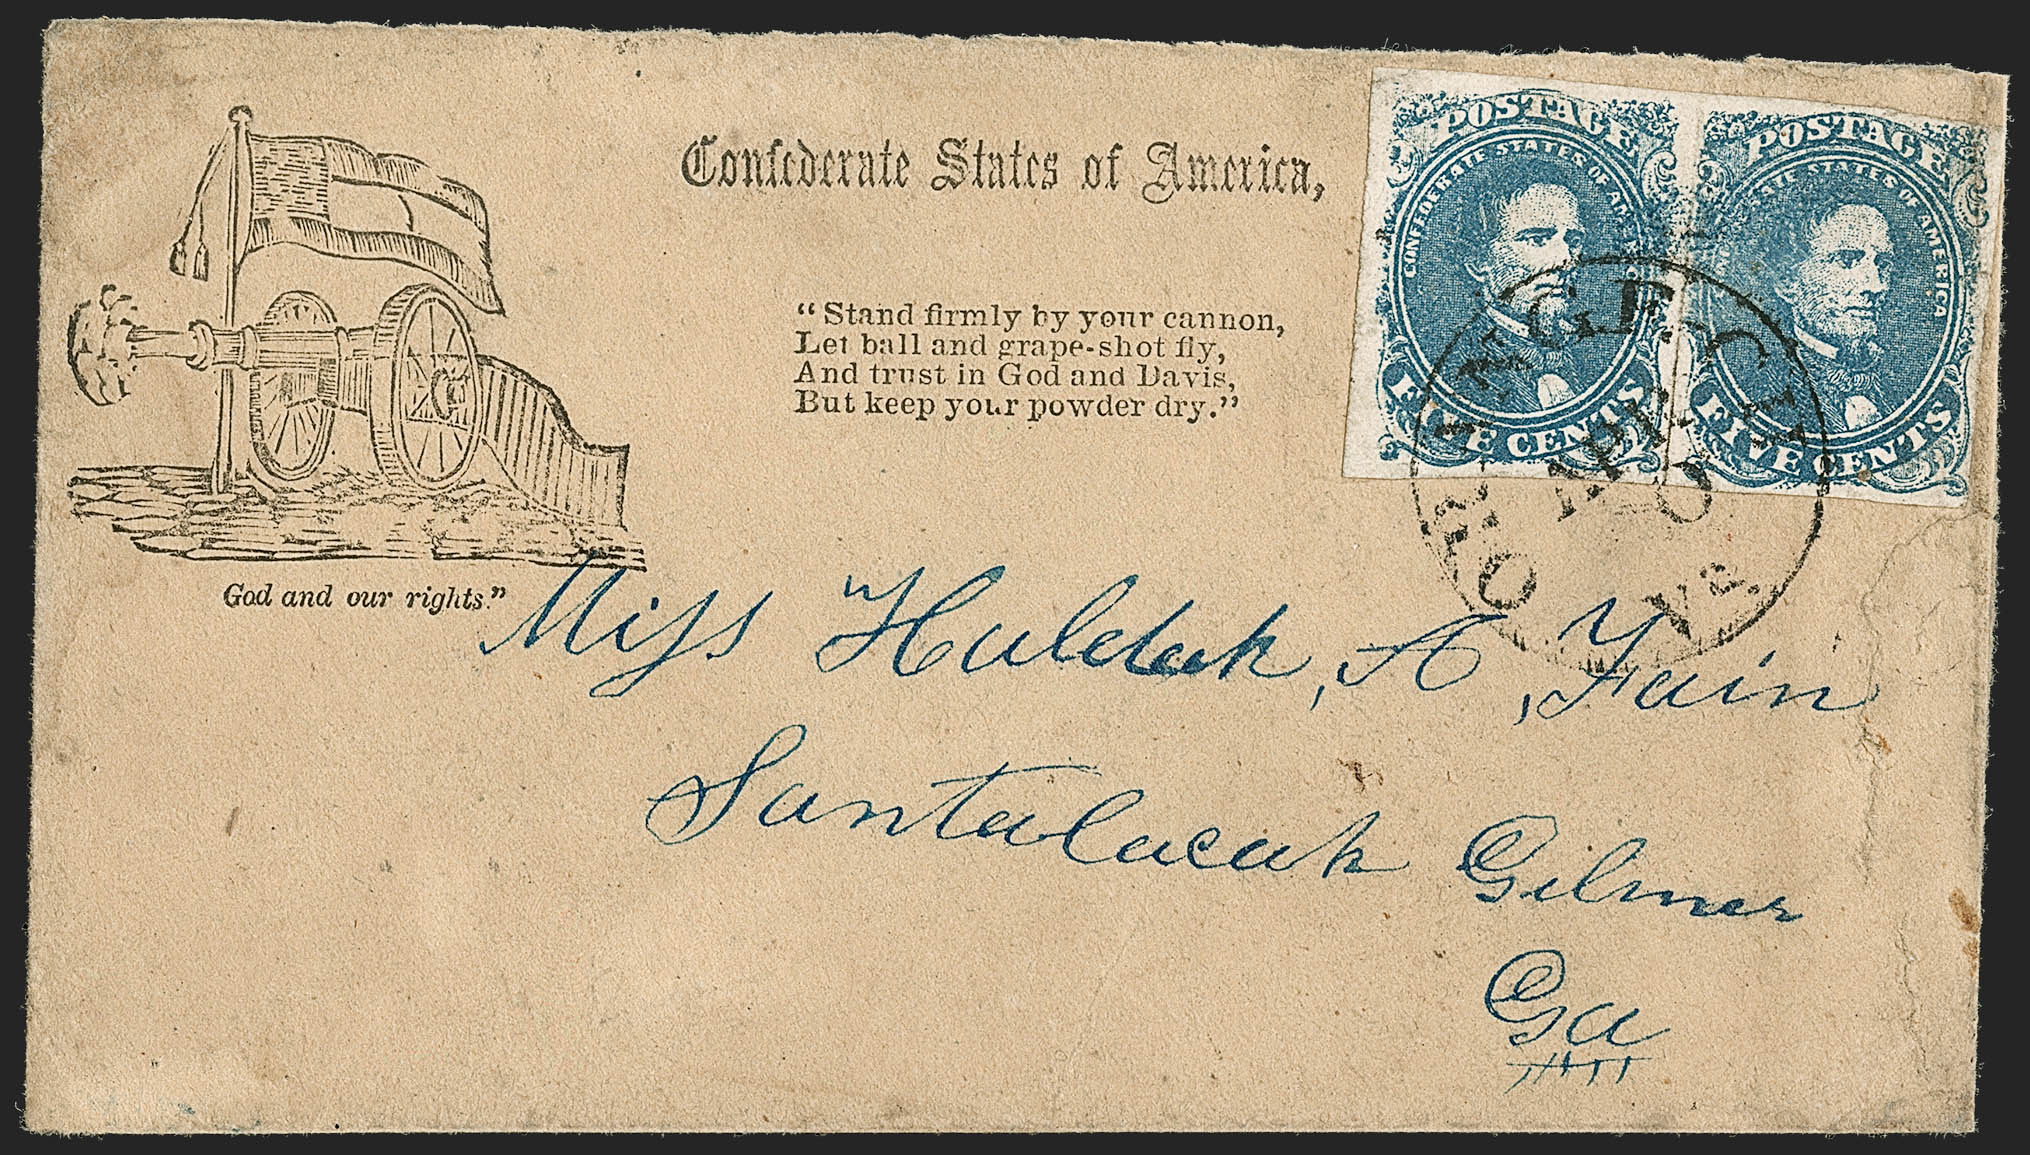 Confederate States of America,
"Stand firmly by your cannon,
Let ball and grape-shot fly,
And trust in God and Davis,
But keep your powder dry."
God and our rights."
POSTAGE
CONFEDERATE STATES OF AMERICA
FIVE CENTS
POSTAGE
STATES OF AMERICA
FIVE CENTS
ORANGE C.H.
APR
Va
Miss Huldah, A, Fain
Santalucah Gilmer
Ga